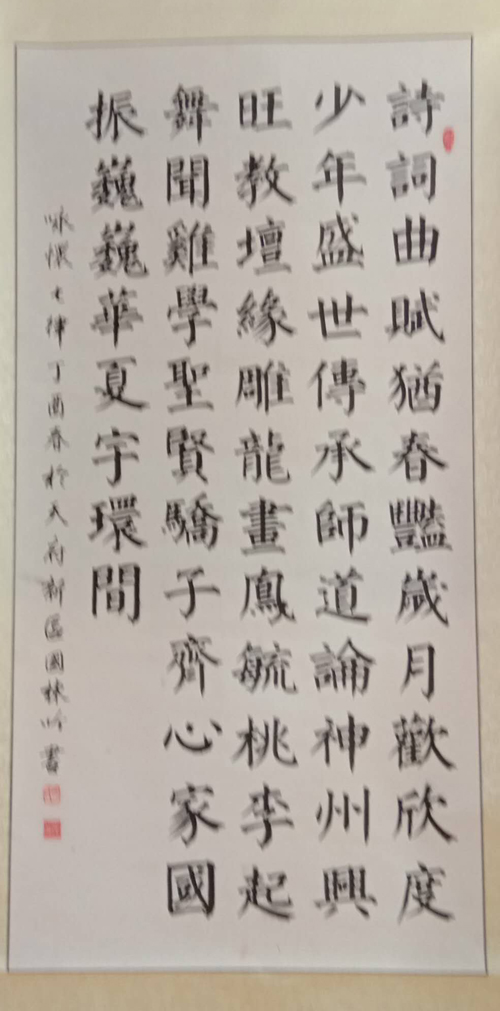 詩詞曲賦猶春豔歲月歡欣度
少年盛世傳承師道論神州興
旺教壇緣雕龍畫鳳毓桃李起
舞聞雞學聖賢驕子齊心家國
振巍巍華夏宇環間
咏懷七律丁酉春於天府新區國林吟書